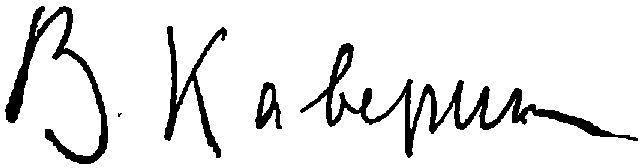 В. Каверин